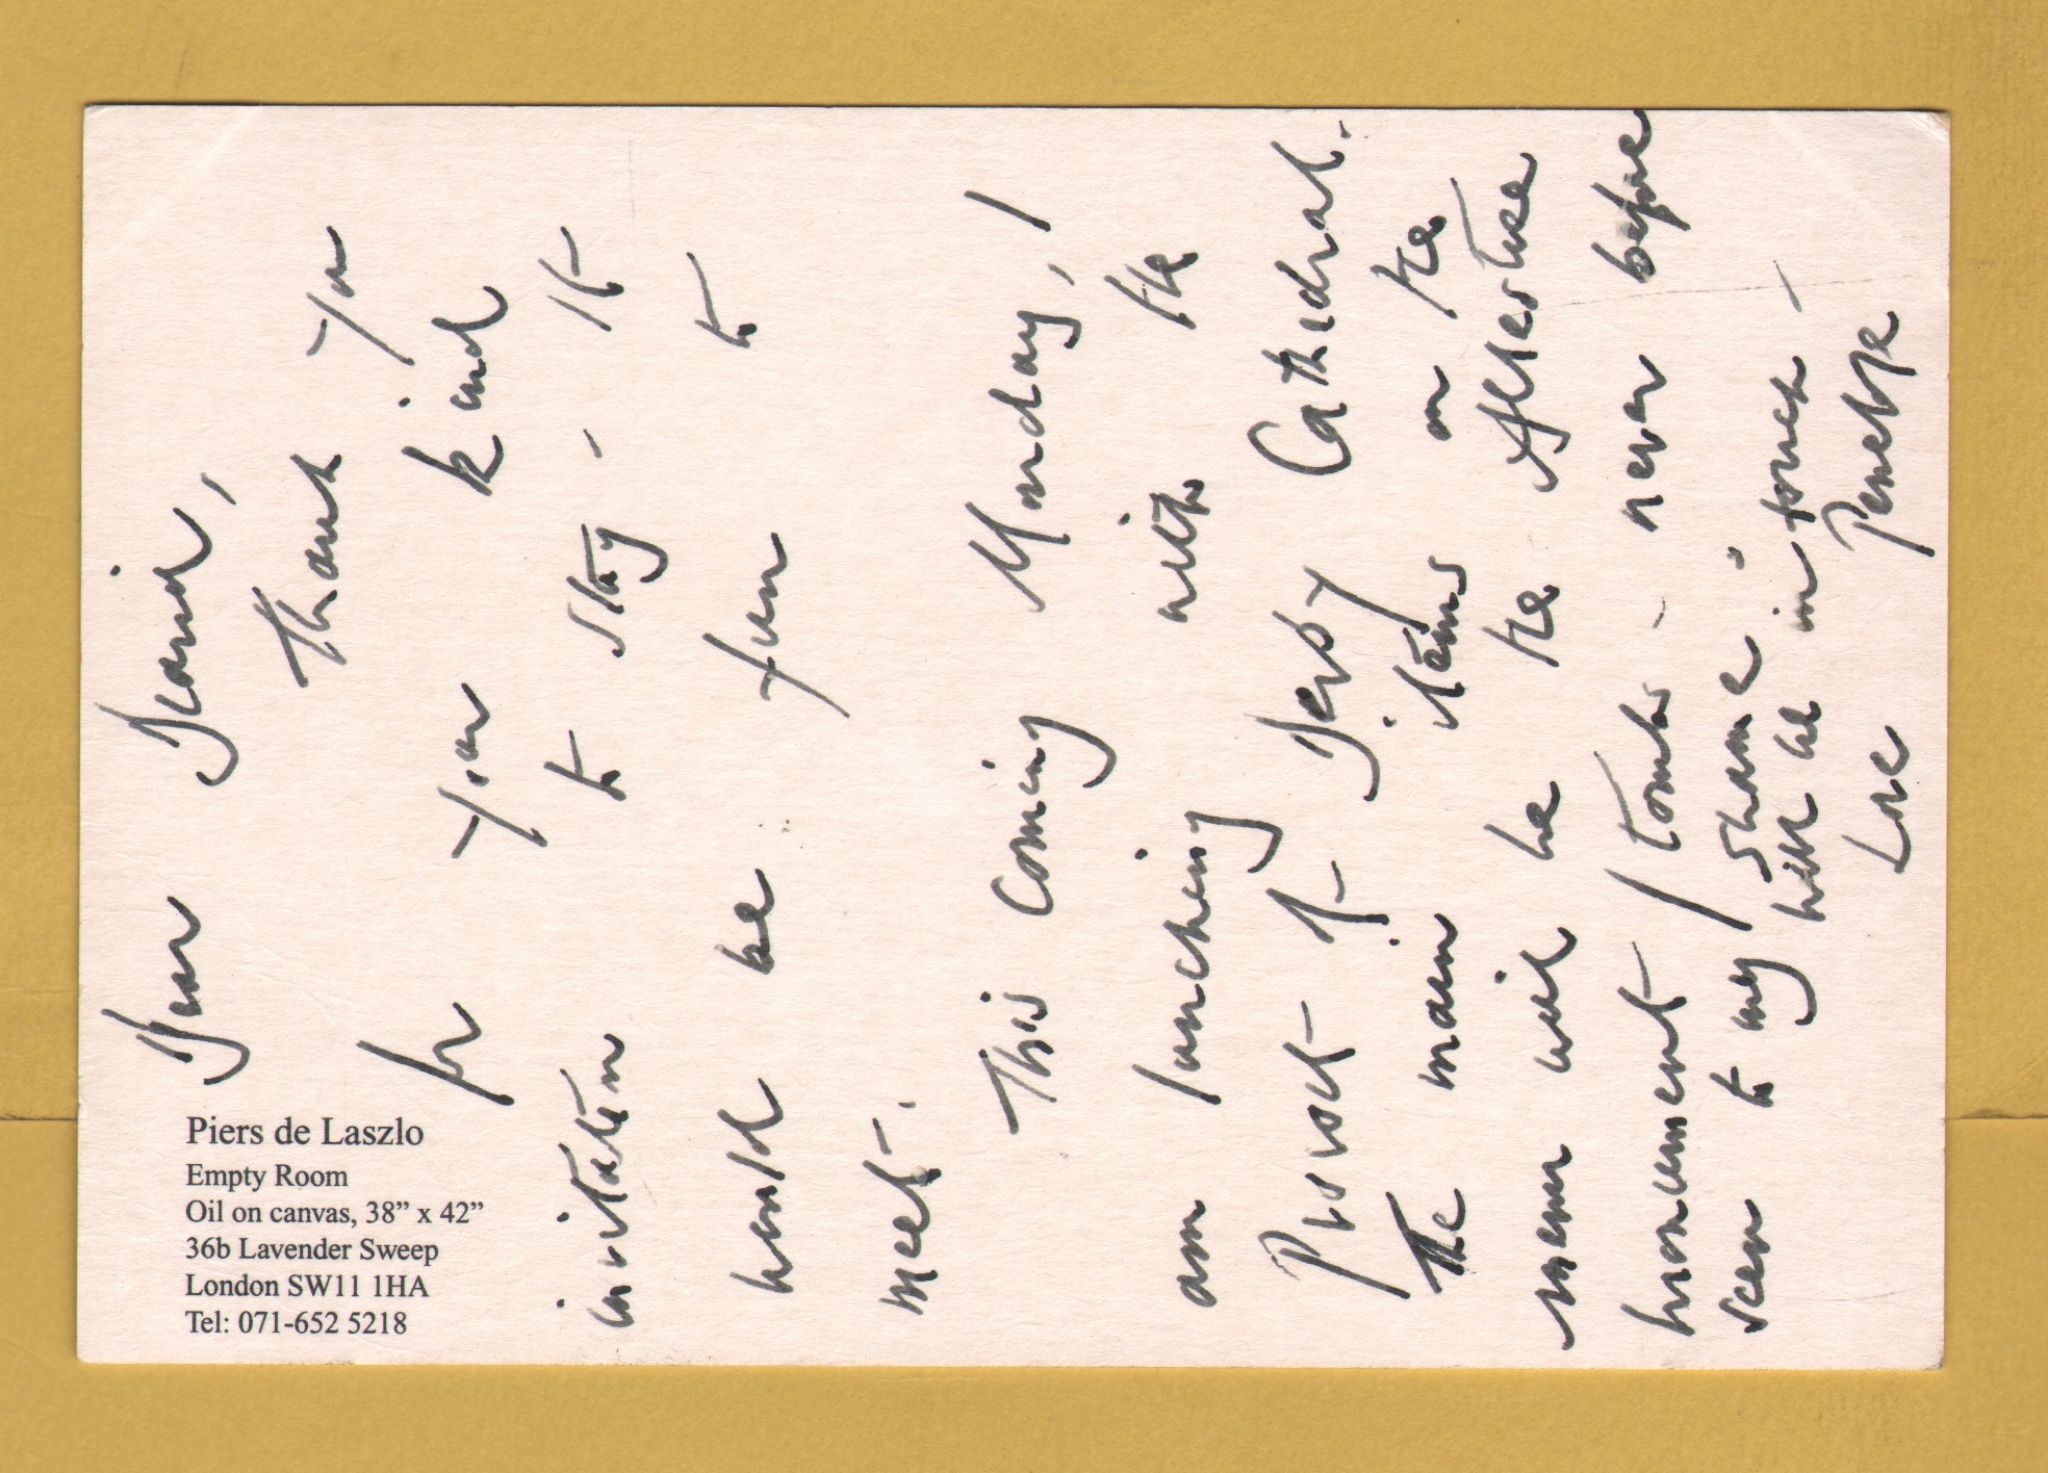 Piers de Laszlo
Empty Room
Oil on canvas, 38” x 42”
36b Lavender Sweep
London SW11 1HA
Tel: 071-652 5218
Dear David,
Thank you
for your kind
invitation to stay. It
would be fun to
meet.
This coming Monday, I
am lunching with the
Provost of Derby Cathedral.
The main items on the
menu will be the
monument / tombs - never before
seen to my shame.
will be in touch -
Love Penelope